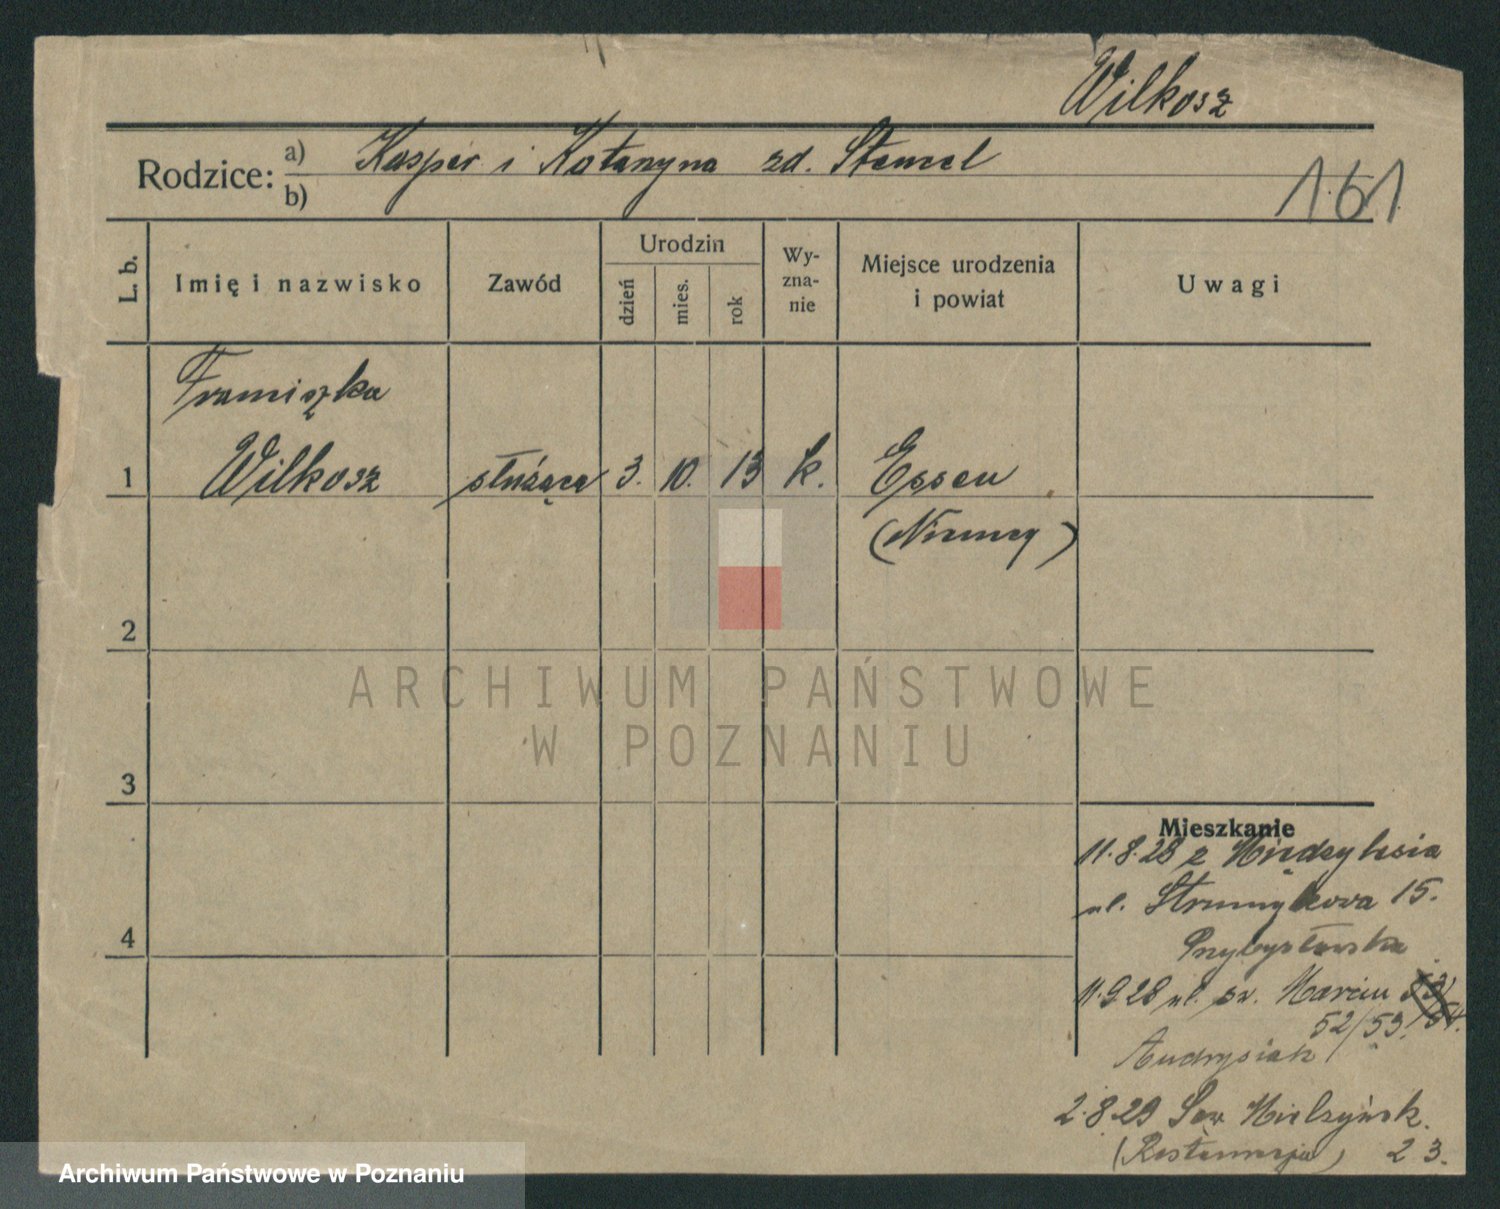 Wilkosz
Rodzice: a) Kasper i Katarzyna zd. Stemel
b)
161
L. b.
Imię i nazwisko
Zawód
Urodzin
dzień
mies.
rok
Wy-
zna-
nie
Miejsce urodzenia
i powiat
Uwagi
Franciszka
1 Wilkosz służąca 3. 10. 13 k. Essen
(Niemcy)
2
ARCHIWUM PAŃSTWOWE
W POZNANIU
3
Mieszkanie
11.8.28 z Międzylesia
ul. Strumykowa 15.
Przybylska
4
11.9.28 ul. św. Marcin
52/53/54.
Andrysiak
2.8.29 Sew. Mielżyńsk.
(Restauracja) 23.
Archiwum Państwowe w Poznaniu